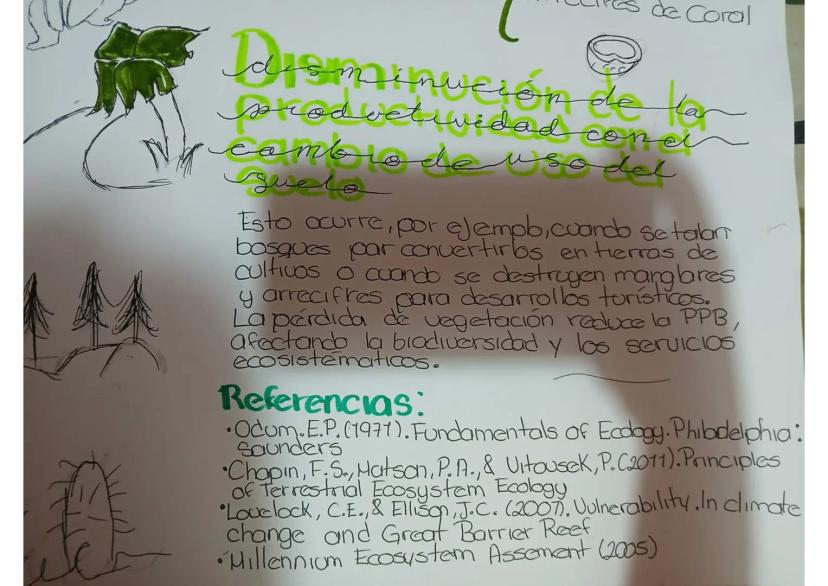 de Coral
Disminución de la
productividad con el
cambio de uso del
suelo
Esto ocurre, por ejemplo, cuando se talan
bosques par convertirlos en tierras de
cultivos o cuando se destruyen manglares
y arrecifres para desarrollos turísticos.
La pérdida de vegetación reduce la PPB,
afectando la biodiversidad y los servicios
ecosistématicos.
Referencias:
•Odum.E.P.(1971).Fundamentals of Ecology.Philadelphia:
Saunders
•Chapin, F.S., Matson, P.A., & Vitousek, P.(2011).Principles
of Terrestrial Ecosystem Ecology
•Lovelock, C.E., & Ellison, J.C. (2007). Vulnerability.In climate
change and Great Barrier Reef
•Millennium Ecosystem Assement (2005)